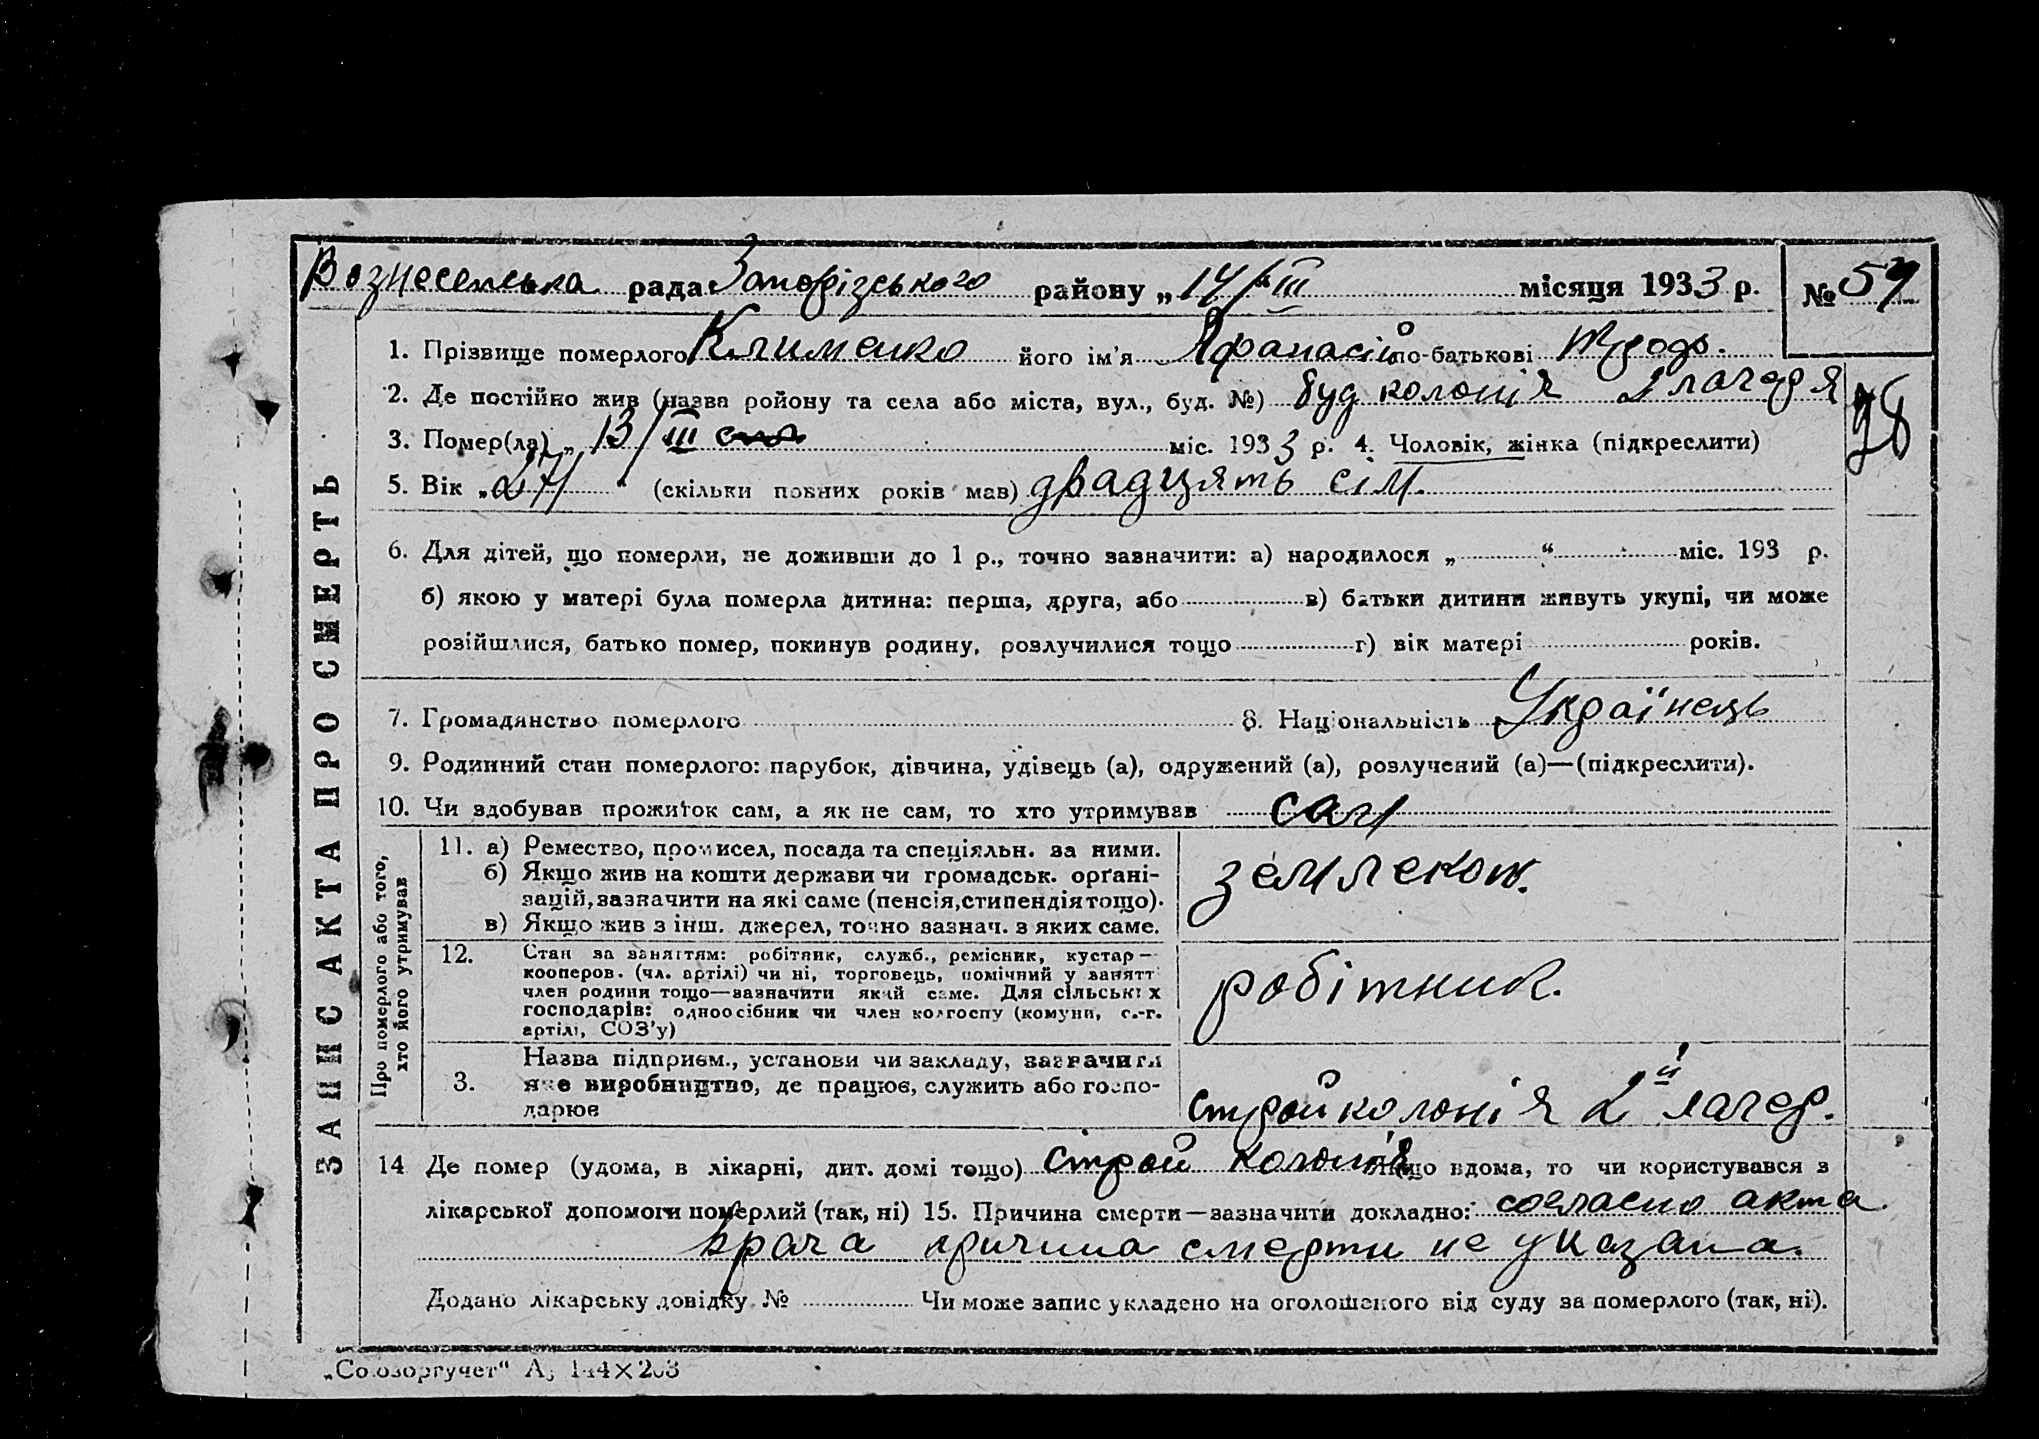 Вознесенська рада Запорізського району „ 14/III місяця 1933 р. № 57
1. Прізвище померлого Клименко його ім'я Афанасій по-батькові
2. Де постійно жив (назва ройону та села або міста, вул., буд. №) буд колонія 2 лагеря
38
3. Помер(ла) „ 13/III міс. 1933 р. 4. Чоловік, жінка (підкреслити)
5. Вік „ 27 “ (скільки повних років мав) двадцять сім.
6. Для дітей, що померли, не доживши до 1 р., точно зазначити: а) народилося „ “ міс. 193 р.
б) якою у матері була померла дитина: перша, друга, або в) батьки дитини живуть укупі, чи може
розійшлися, батько помер, покинув родину, розлучилися тощо г) вік матері років.
7. Громадянство померлого 8. Національність Українець
9. Родинний стан померлого: парубок, дівчина, удівець (а), одружений (а), розлучений (а)—(підкреслити).
10. Чи здобував прожиток сам, а як не сам, то хто утримував сам
ЗАПИС АКТА ПРО СМЕРТЬ
Про померлого або того,
хто його утримував
11. а) Ремество, промисел, посада та спеціяльн. за ними.
б) Якщо жив на кошти держави чи громадськ. орґані-
зацій, зазначити на які саме (пенсія, стипендія тощо).
в) Якщо жив з інш. джерел, точно зазнач. з яких саме.
землекоп.
12. Стан за заняттям: робітник, служб., ремісник, кустар—
кооперов. (чл. артілі) чи ні, торговець, помічний у занятт
член родини тощо—зазначити який саме. Для сільських
господарів: одноосібник чи член колгоспу (комуни, с.-г.
артілі, СОЗ'у)
робітник.
3. Назва підприєм., установи чи закладу, зазначити
яке виробництво, де працює, служить або госпо-
дарює
стройколонія 2й лагер.
14 Де помер (удома, в лікарні, дит. домі тощо) Строй колонія Якщо вдома, то чи користувався з
лікарської допомоги померлий (так, ні) 15. Причина смерти—зазначити докладно: согласно акта
врача причина смерти не указана.
Додано лікарську довідку № Чи може запис укладено на оголошеного від суду за померлого (так, ні).
„Союзоргучет“ А5 144×203